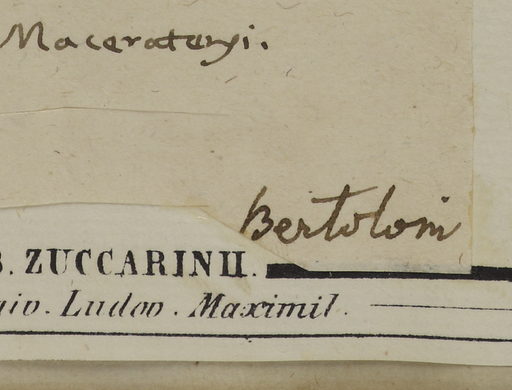 Maceratensi.
Bertoloni
B. ZUCCARINII.
iv. Ludov. Maximil.